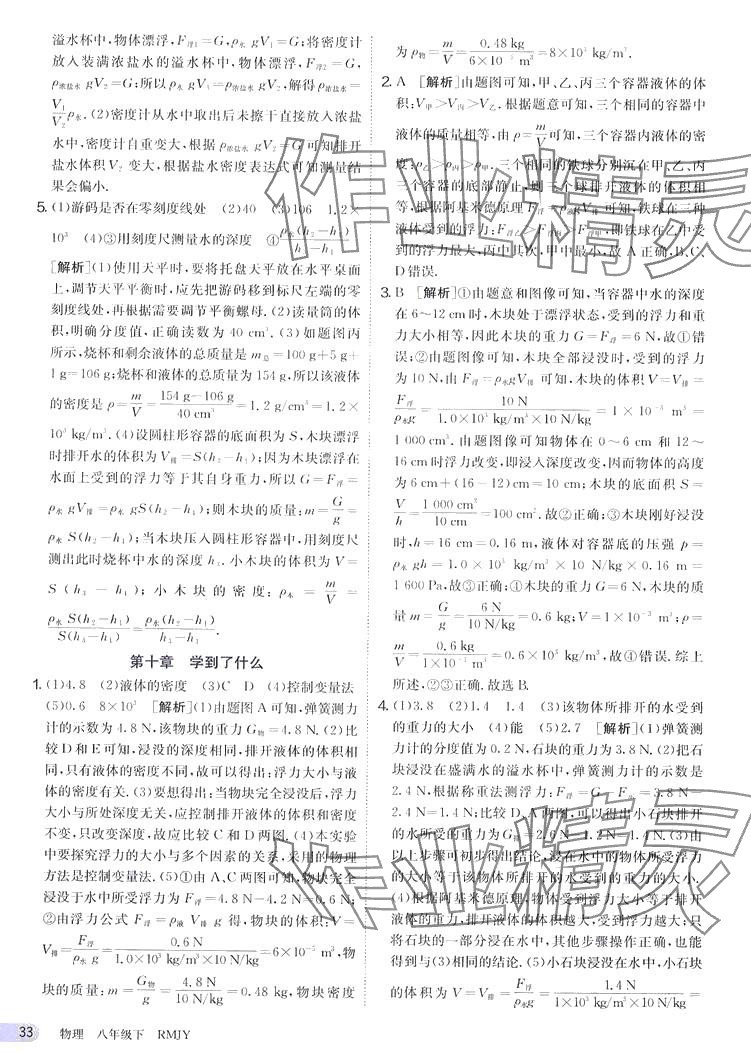 溢水杯中,物体漂浮,F浮1=G,ρ水 gV1=G;将密度计
放入装满浓盐水的溢水杯中,物体漂浮,F浮2=G,
ρ浓盐水 gV2=G;所以ρ水 gV1=ρ浓盐水 gV2,解得ρ浓盐水=
V1/V2 ρ水. (2)密度计从水中取出后未擦干直接放入浓盐
水中,密度计自重变大,根据ρ浓盐水 gV2=G 可知排开
盐水体积 V2 变大,根据盐水密度表达式可知测量结
果会偏小.
5. (1)游码是否在零刻度线处 (2)40 (3)106 1.2×
10³ (4)③用刻度尺测量水的深度 ④ρ水(h2-h1)/(h3-h1)
[解析](1)使用天平时,要将托盘天平放在水平桌面
上,调节天平平衡时,应先把游码移到标尺左端的零
刻度线处,再根据需要调节平衡螺母. (2)读量筒的体
积,明确分度值,正确读数为 40 cm³. (3)如题图丙
所示,烧杯和剩余液体的总质量是 m总=100 g+5 g+
1 g=106 g;烧杯和液体的总质量为 154 g,所以该液体
的密度是 ρ=m/V=(154 g-106 g)/(40 cm³)=1.2 g/cm³=1.2×
10³ kg/m³. (4)设圆柱形容器的底面积为 S,木块漂浮
时排开水的体积为 V排=S(h2-h1);因为木块漂浮在
水面上受到的浮力等于其自身重力,所以 G=F浮=
ρ水 gV排=ρ水 gS(h2-h1);则木块的质量:m=G/g=
ρ水S(h2-h1);当木块压入圆柱形容器中,用刻度尺
测出此时烧杯中水的深度 h3. 小木块的体积为 V=
S(h3-h1);小木块的密度:ρ木=m/V=
ρ水S(h2-h1)/S(h3-h1)=ρ水(h2-h1)/(h3-h1).
第十章 学到了什么
1. (1)4.8 (2)液体的密度 (3)C D (4)控制变量法
(5)0.6 8×10³ [解析](1)由题图 A 可知,弹簧测力
计的示数为 4.8 N,该物块的重力 G物=4.8 N. (2)比
较 D 和 E 可知,浸没的深度相同,排开液体的体积相
同,只有液体的密度不同,故可以得出:浮力大小与液
体的密度有关. (3)要想得出:当物块完全浸没后,浮力
大小与所处深度无关,应控制排开液体的体积和密度
不变,只改变深度,故应比较 C 和 D 两图. (4)本实验
中要探究浮力的大小与多个因素的关系,采用的物理
方法是控制变量法. (5)①由 A、C 两图可知,物块完全
浸没于水中所受浮力为 F浮=4.8 N-4.2 N=0.6 N;
②由浮力公式 F浮=ρ液 V排 g 得,物块的体积:V=
V排=F浮/(ρ水 g)=0.6 N/(1.0×10³ kg/m³×10 N/kg)=6×10⁻⁵ m³,物
块的质量:m=G物/g=4.8 N/(10 N/kg)=0.48 kg,物块密度
为 ρ物=m/V=0.48 kg/(6×10⁻⁵ m³)=8×10³ kg/m³.
2. A [解析]由题图可知,甲、乙、丙三个容器液体的体
积:V甲>V丙>V乙. 根据题意可知,三个相同的容器中
液体的质量相等,由 ρ=m/V可知,三个容器内液体的密
度:ρ乙>ρ丙>ρ甲. 三个相同的铁球分别沉在甲、乙、丙
三个容器的底部静止,则三个球排开液体的体积相
等,根据阿基米德原理 F浮=ρ液 gV排可知,铁球在三种
液体中受到的浮力:F浮乙>F浮丙>F浮甲;即铁球在乙中受
到的浮力最大,丙中其次,甲中最小,故 A 正确,B、C、
D 错误.
3. B [解析]①由题意和图像可知,当容器中水的深度
在 6~12 cm 时,木块处于漂浮状态,受到的浮力和重
力大小相等,因此木块的重力 G=F浮=6 N,故①错
误;②由题图像可知,木块全部浸没时,受到的浮力
为 10 N,由 F浮=ρ水 gV排可知,木块的体积 V=V排=
F浮/(ρ水g)=10 N/(1.0×10³ kg/m³×10 N/kg)=1×10⁻³ m³=
1 000 cm³. 由题图像可知物体在 0~6 cm 和 12~
16 cm 时浮力改变,即浸入深度改变,因而物体的高度
为 6 cm+(16-12)cm=10 cm;木块的底面积 S=
V/h=1 000 cm³/10 cm=100 cm². 故②正确;③木块刚好浸没
时,h=16 cm=0.16 m,液体对容器底的压强 p=
ρ水 gh=1.0×10³ kg/m³×10 N/kg×0.16 m=
1 600 Pa,故③正确;④木块的重力 G=6 N,木块的质
量 m=G/g=6 N/(10 N/kg)=0.6 kg;V=1×10⁻³ m³;ρ=
m/V=0.6 kg/(1×10⁻³ m³)=0.6×10³ kg/m³,故④错误. 综上
所述,②③正确. 故选 B.
4. (1)3.8 (2)1.4 1.4 (3)该物体所排开的水受到
的重力的大小 (4)能 (5)2.7 [解析](1)弹簧测
力计的分度值为 0.2 N,石块的重力为 3.8 N. (2)把石
块浸没在盛满水的溢水杯中,弹簧测力计的示数是
2.4 N,根据称重法测浮力:F浮=G-F示=3.8 N-
2.4 N=1.4 N;比较 D、A 两图,可以得出小石块排开
的水所受的重力为 G排=2.6 N-1.2 N=1.4 N. (3)由
以上步骤可初步得出结论,浸在水中的物体所受浮力
的大小等于该物体所排开的水受到的重力的大小.
(4)根据阿基米德原理,物体受到浮力大小等于排开
液体的重力,漂浮或悬浮时,受到的浮力等于重力;只
将石块的一部分浸在水中,其他步骤操作正确,也能
得到与(3)相同的结论. (5)小石块浸没在水中,其体
积为 V=V排=F浮/(ρ水g)=1.4 N/(1×10³ kg/m³×10 N/kg)=
33 物理 八年级下 RMJY
作业精灵
作业精灵